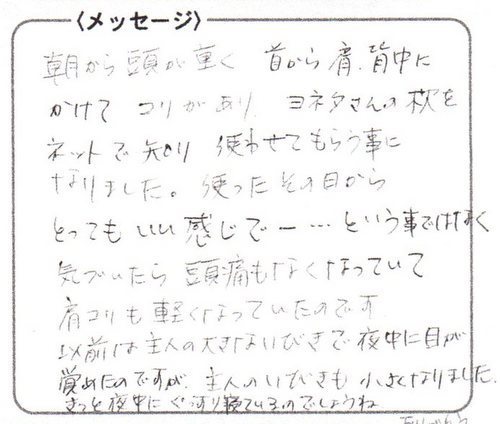 〈メッセージ〉
朝から頭が重く 首から肩、背中に
かけて コリがあり、ヨネタさんの枕を
ネットで知り 使わせてもらう事に
なりました。使ったその日から
とってもいい感じでー…という事ではなく
気づいたら 頭痛もなくなっていて
肩コリも軽くなっていたのです
以前は主人の大きないびきで夜中に目が
覚めたのですが、主人のいびきも 小さくなりました。
きっと夜中にぐっすり寝ているのでしょうね